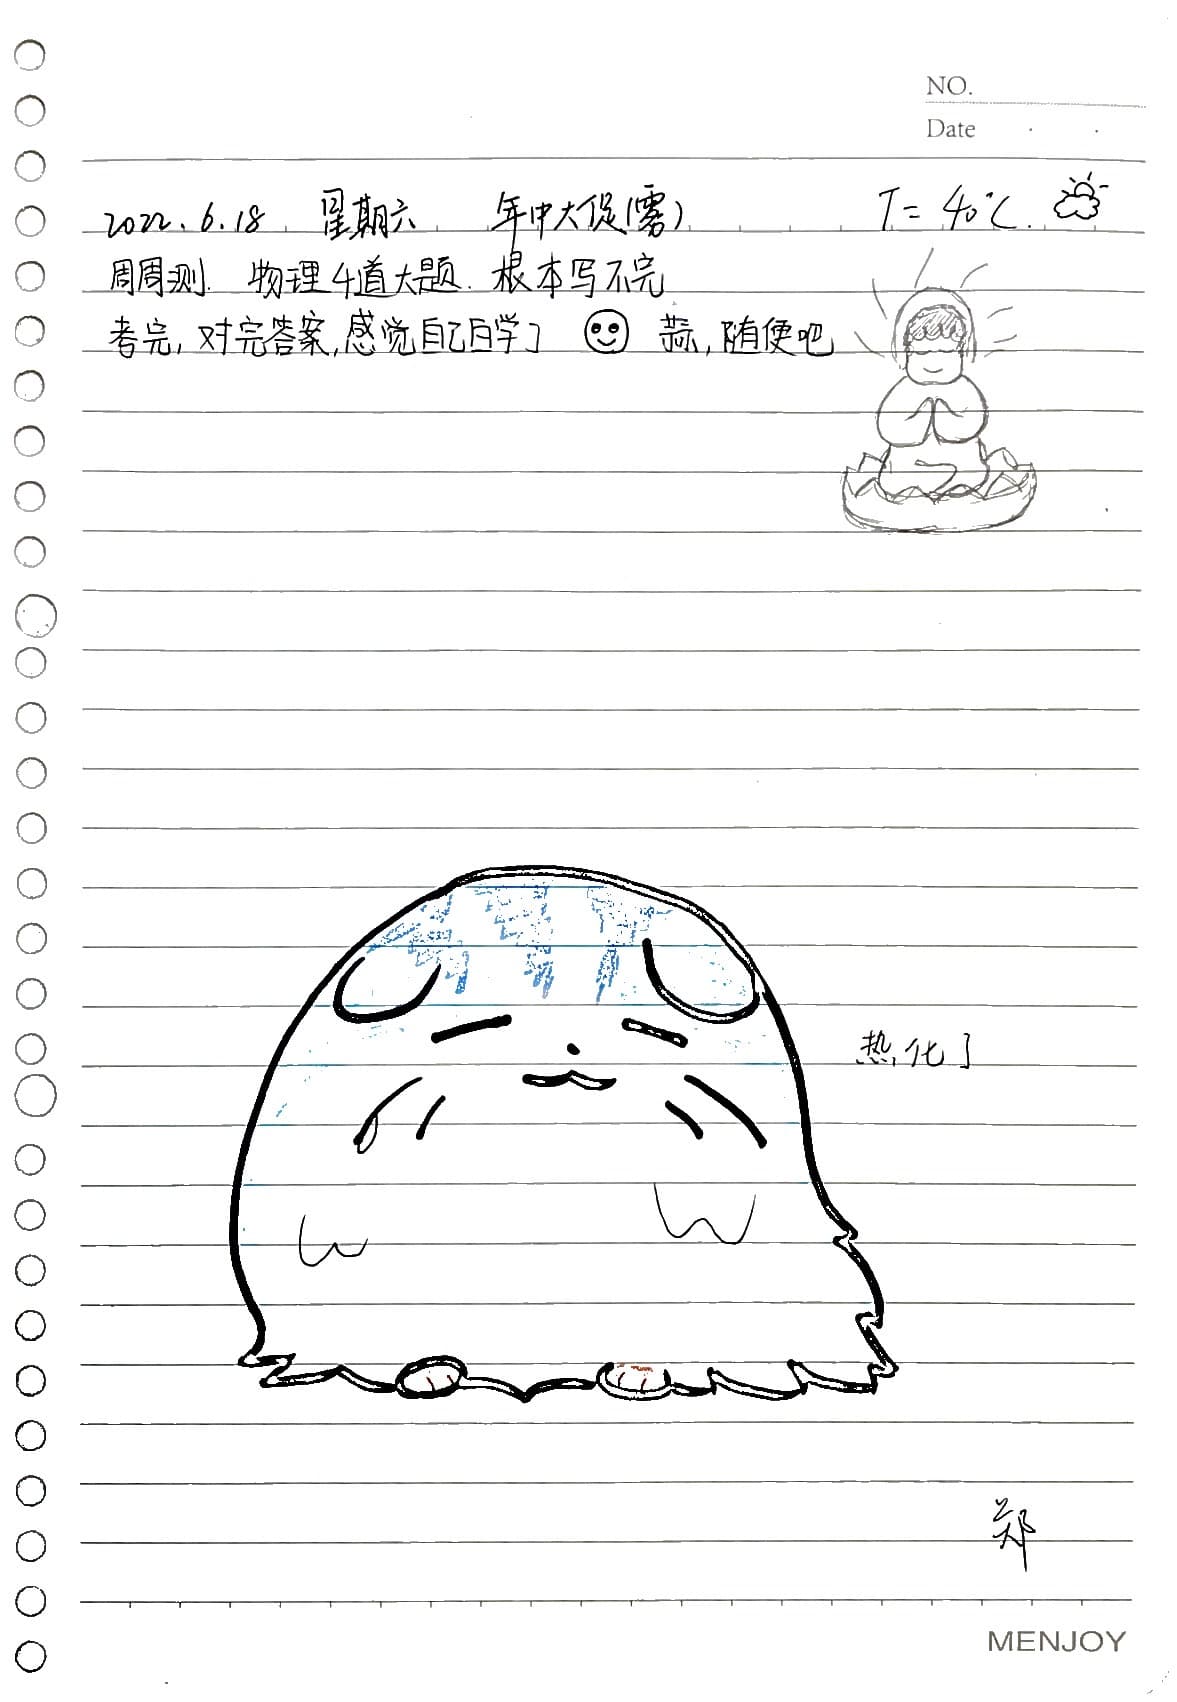 NO.
Date
2022.6.18 星期六 年中大促(雾) T=40℃
周周测. 物理4道大题. 根本写不完
考完,对完答案,感觉自己白学了 蒜,随便吧
热化了
郑
MENJOY